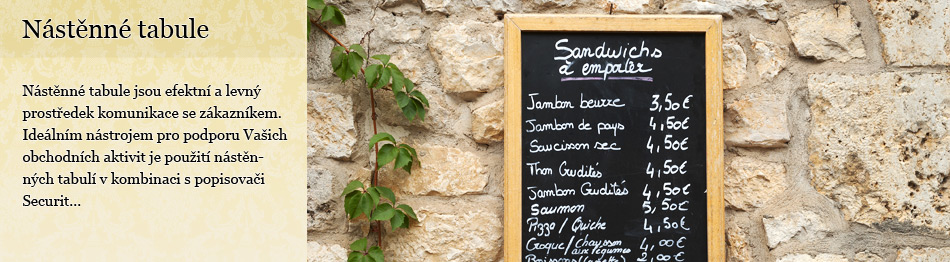 Nástěnné tabule
Nástěnné tabule jsou efektní a levný
prostředek komunikace se zákazníkem.
Ideálním nástrojem pro podporu Vašich
obchodních aktivit je použití nástěn-
ných tabulí v kombinaci s popisovači
Securit...
Sandwichs
à emporter
Jambon beurre 3,50€
Jambon de pays 4,50€
Saucisson sec 4,50€
Thon Crudités 4,50€
Jambon Crudités 4,50€
Saumon 5,50€
Pizza / Quiche 4,50€
Croque / Chausson aux légumes 4,00€
Boissons 2,00€